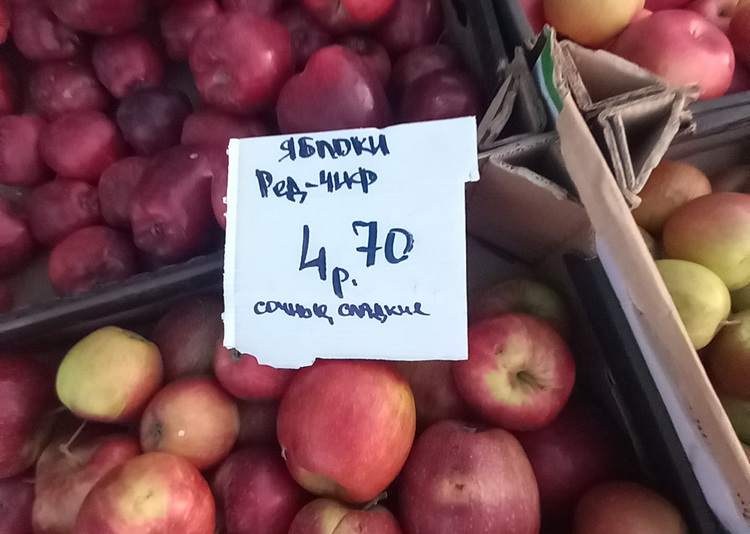 ЯБЛОКИ
Ред-чиф
4р.70
сочные, сладкие